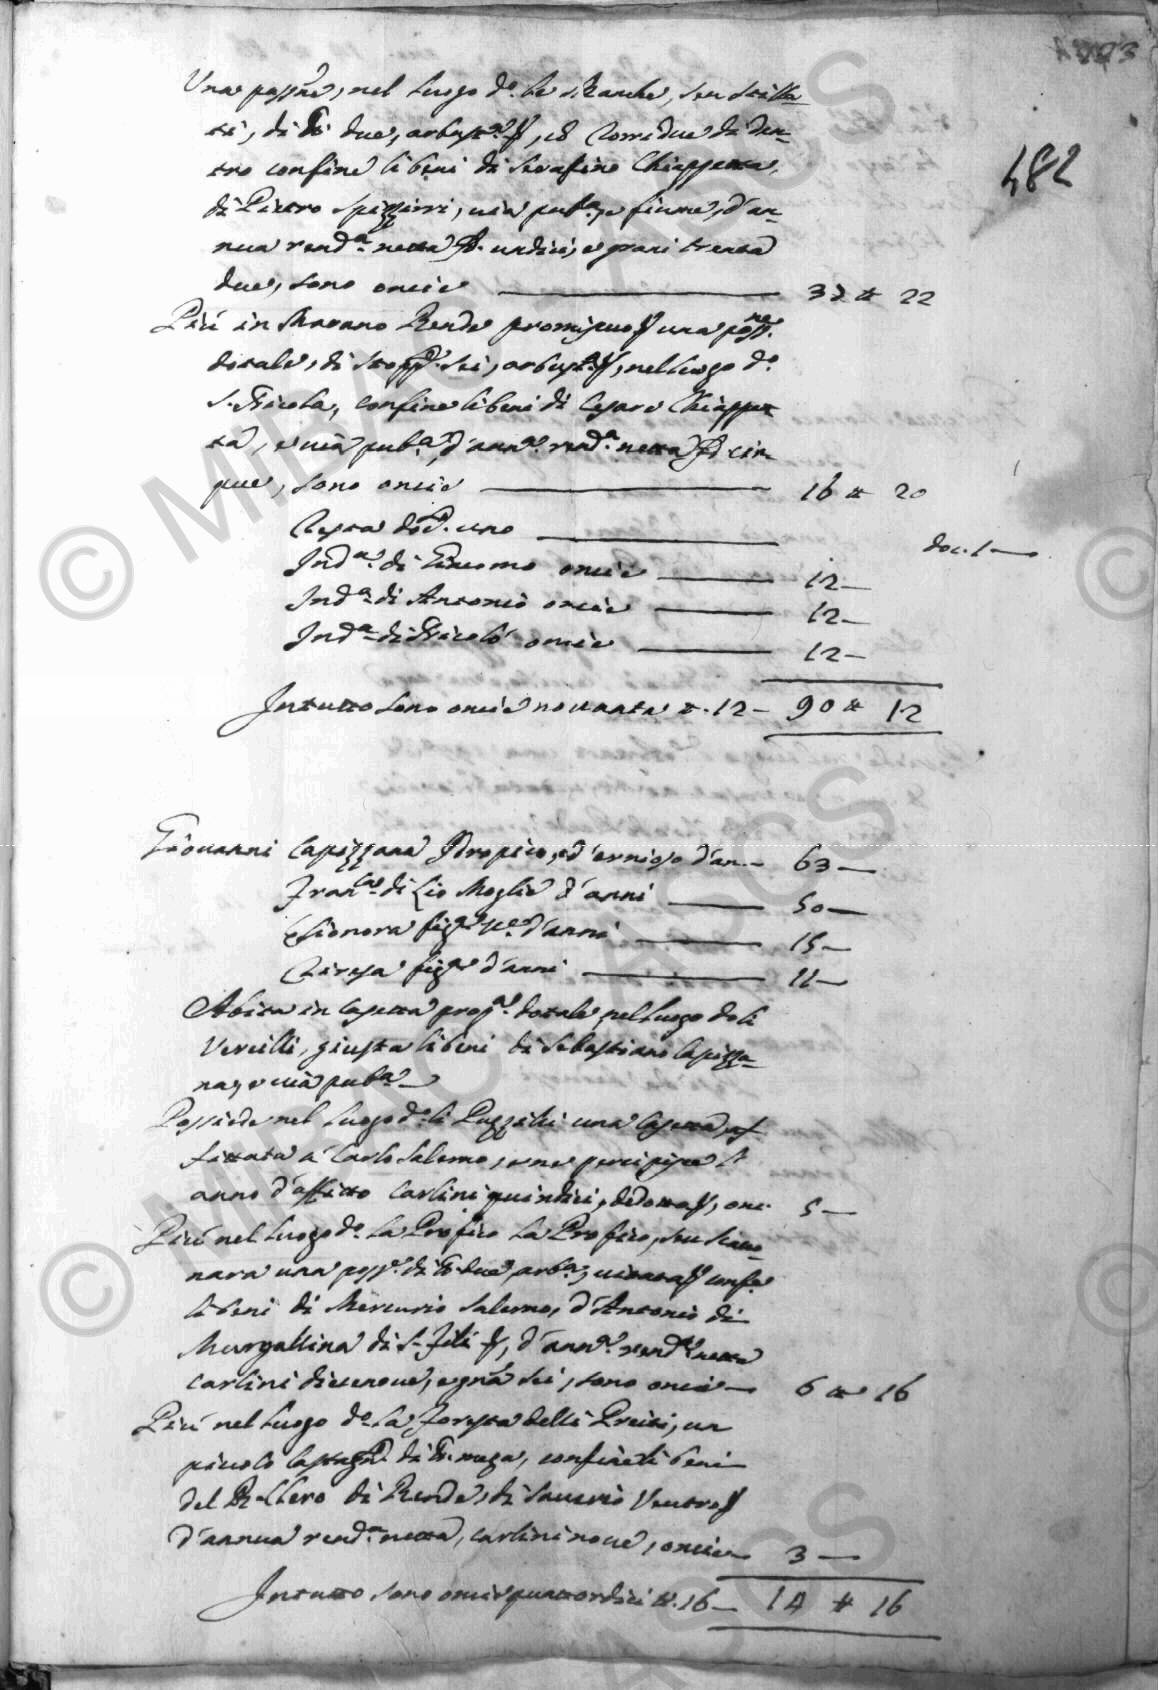 482
Una poss.ne, nel luogo d.o li Ranche, seu Stilla
ti, di due, arbust.a, ed corridue da den-
tro confine li beni di Serafino Chiappetta,
di Pietro Spizzirri, via pub.a, e fiume, d'an-
nua rend.a netta d. undici, e grani trenta
due, sono oncie — 37 # 22
Più in Marano Rende promiscuo una poss.ne
dotale, di stopp.e sei, arbust.a, nel luogo d.o
S. Nicola, confine li beni di Cesare Chiappet
ta, e via pub.a, d'ann.a rend.a netta d. cin
que, sono oncie — 16 # 20
Testa doc. uno — doc. 1 —
Ind.a di Giacomo oncie — 12 —
Ind.a di Antonio oncie — 12 —
Ind.a di Nicolò oncie — 12 —
In tutto sono oncie novanta #. 12 — 90 # 12
Giovanni Capizzana Idropico, ed ernioso d'an. — 63 —
Fran.ca di Lio Moglie d'anni — 50 —
Elionora figlia d'anni — 15 —
Teresa fig.a d'anni — 11 —
Abita in casetta prop.a dotale, nel luogo do li
Vercilli, giusta li beni di Sebastiano Capizza-
na, e via pub.a —
Possiede nel luogo d.o li Puzzilli una casetta, af
fittata a Carlo Salerno, e ne percipisce l'
anno d'affitto carlini quindici, dedotta, onc. 5 —
Più nel luogo d.o la Profico La Profico, seu
nara una poss.e di due arb.a, vitata confe
li beni di Mercurio Salerno, d'Antonio di
Murgallina di S. Fili, d'ann.a rend.a netta
carlini diecenove, e gna sei, sono oncie — 6 # 16
Più nel luogo d.o la Foresta delli Preiti, un
piccolo castag.to di meza, confine li beni
del R. Clero di Rende, di Saverio Ventre
d'annua rend.a netta, carlini nove, oncie — 3 —
In tutto sono oncie quattordici #. 16 — 14 # 16
© MIBAC ASCS
© MIBAC ASCS